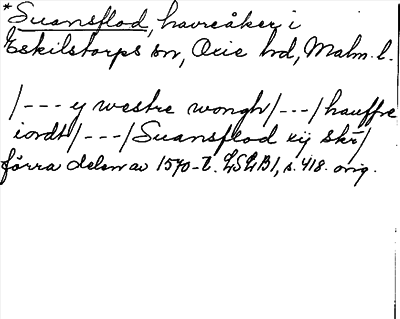 *Suansflod, havreåker i
Eskilstorps sn, Oxie hd, Malm. l.
/--- y westre wongh/---/hauffre
iordt/---/Suansflod xij skr/
förra delen av 1570-t. LSLB1, s. 418. orig.